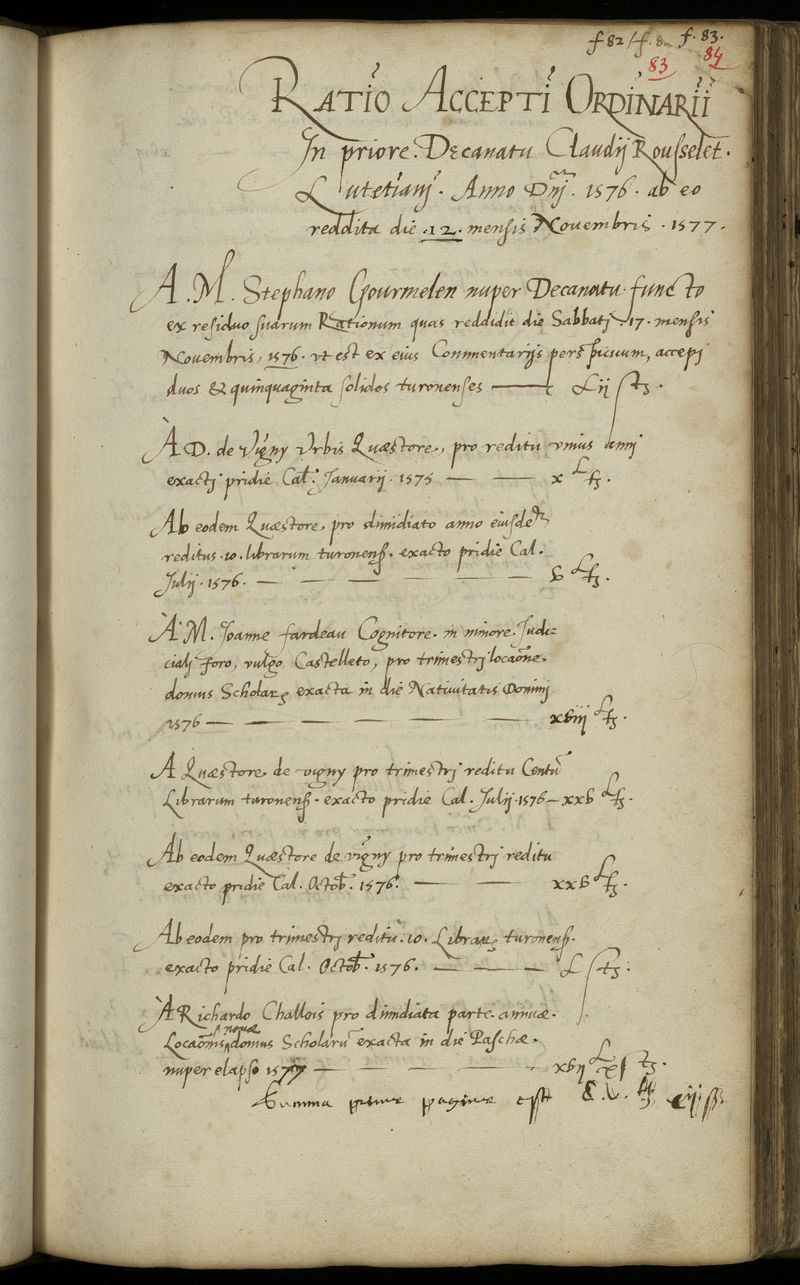 f 82 / f. 8 f. 83.
83 84
RATIO ACCEPTI ORDINARII
In priore Decanatu Claudij Rousselet.
Lutetianj. Anno Dnj. 1576. ab eo
reddita die .12. mensis Novembris .1577.
A. M. Stephano Gourmelen nuper Decanatu functo
ex residuo suarum Rationum quas reddidit die Sabbatj .17. mensis
Novembris, 1576. vt est ex eius Commentarijs perspicuum, accepj
duos & quinquaginta solidos turonenses — Lij s tz.
A D. de Vigny Vrbis Quæstore, pro reditu vnius annj
exactj pridie Cal. Januarij. 1575 — — x L tz.
Ab eodem Quæstore, pro dimidiato anno eiusdem
reditus .10. librarum turonens. exacto pridie Cal.
Julij. 1576. — — — — — — v L tz.
A M. Joanne fardeau Cognitore. in minore. Judi-
cialj foro, vulgo Castelleto, pro trimestrj locaone.
domus Scholarz exacta in die Nativitatis Dominj
1576 — — — — — — xviij L tz.
A Quæstore. de vigny pro trimestrj reditu Centū
Librarum turonens. exacto pridie Cal. Julij. 1576 — xxv L tz.
Ab eodem Quæstore de vigny pro trimestrj reditu
exacto pridie Cal. Octob. 1576. — — xxv L tz.
Ab eodem pro trimestrj reditu .10. Librarz turonens.
exacto pridie Cal. Octob. 1576. — — — L s tz.
A Richardo Challois pro dimidiata parte. annuæ.
Locaonis novæ domus Scholarū exacta in die Paschæ.
nuper elapso 1577 — — — — xvij L x s tz.
Summa prime pagine est C. v. L cij s